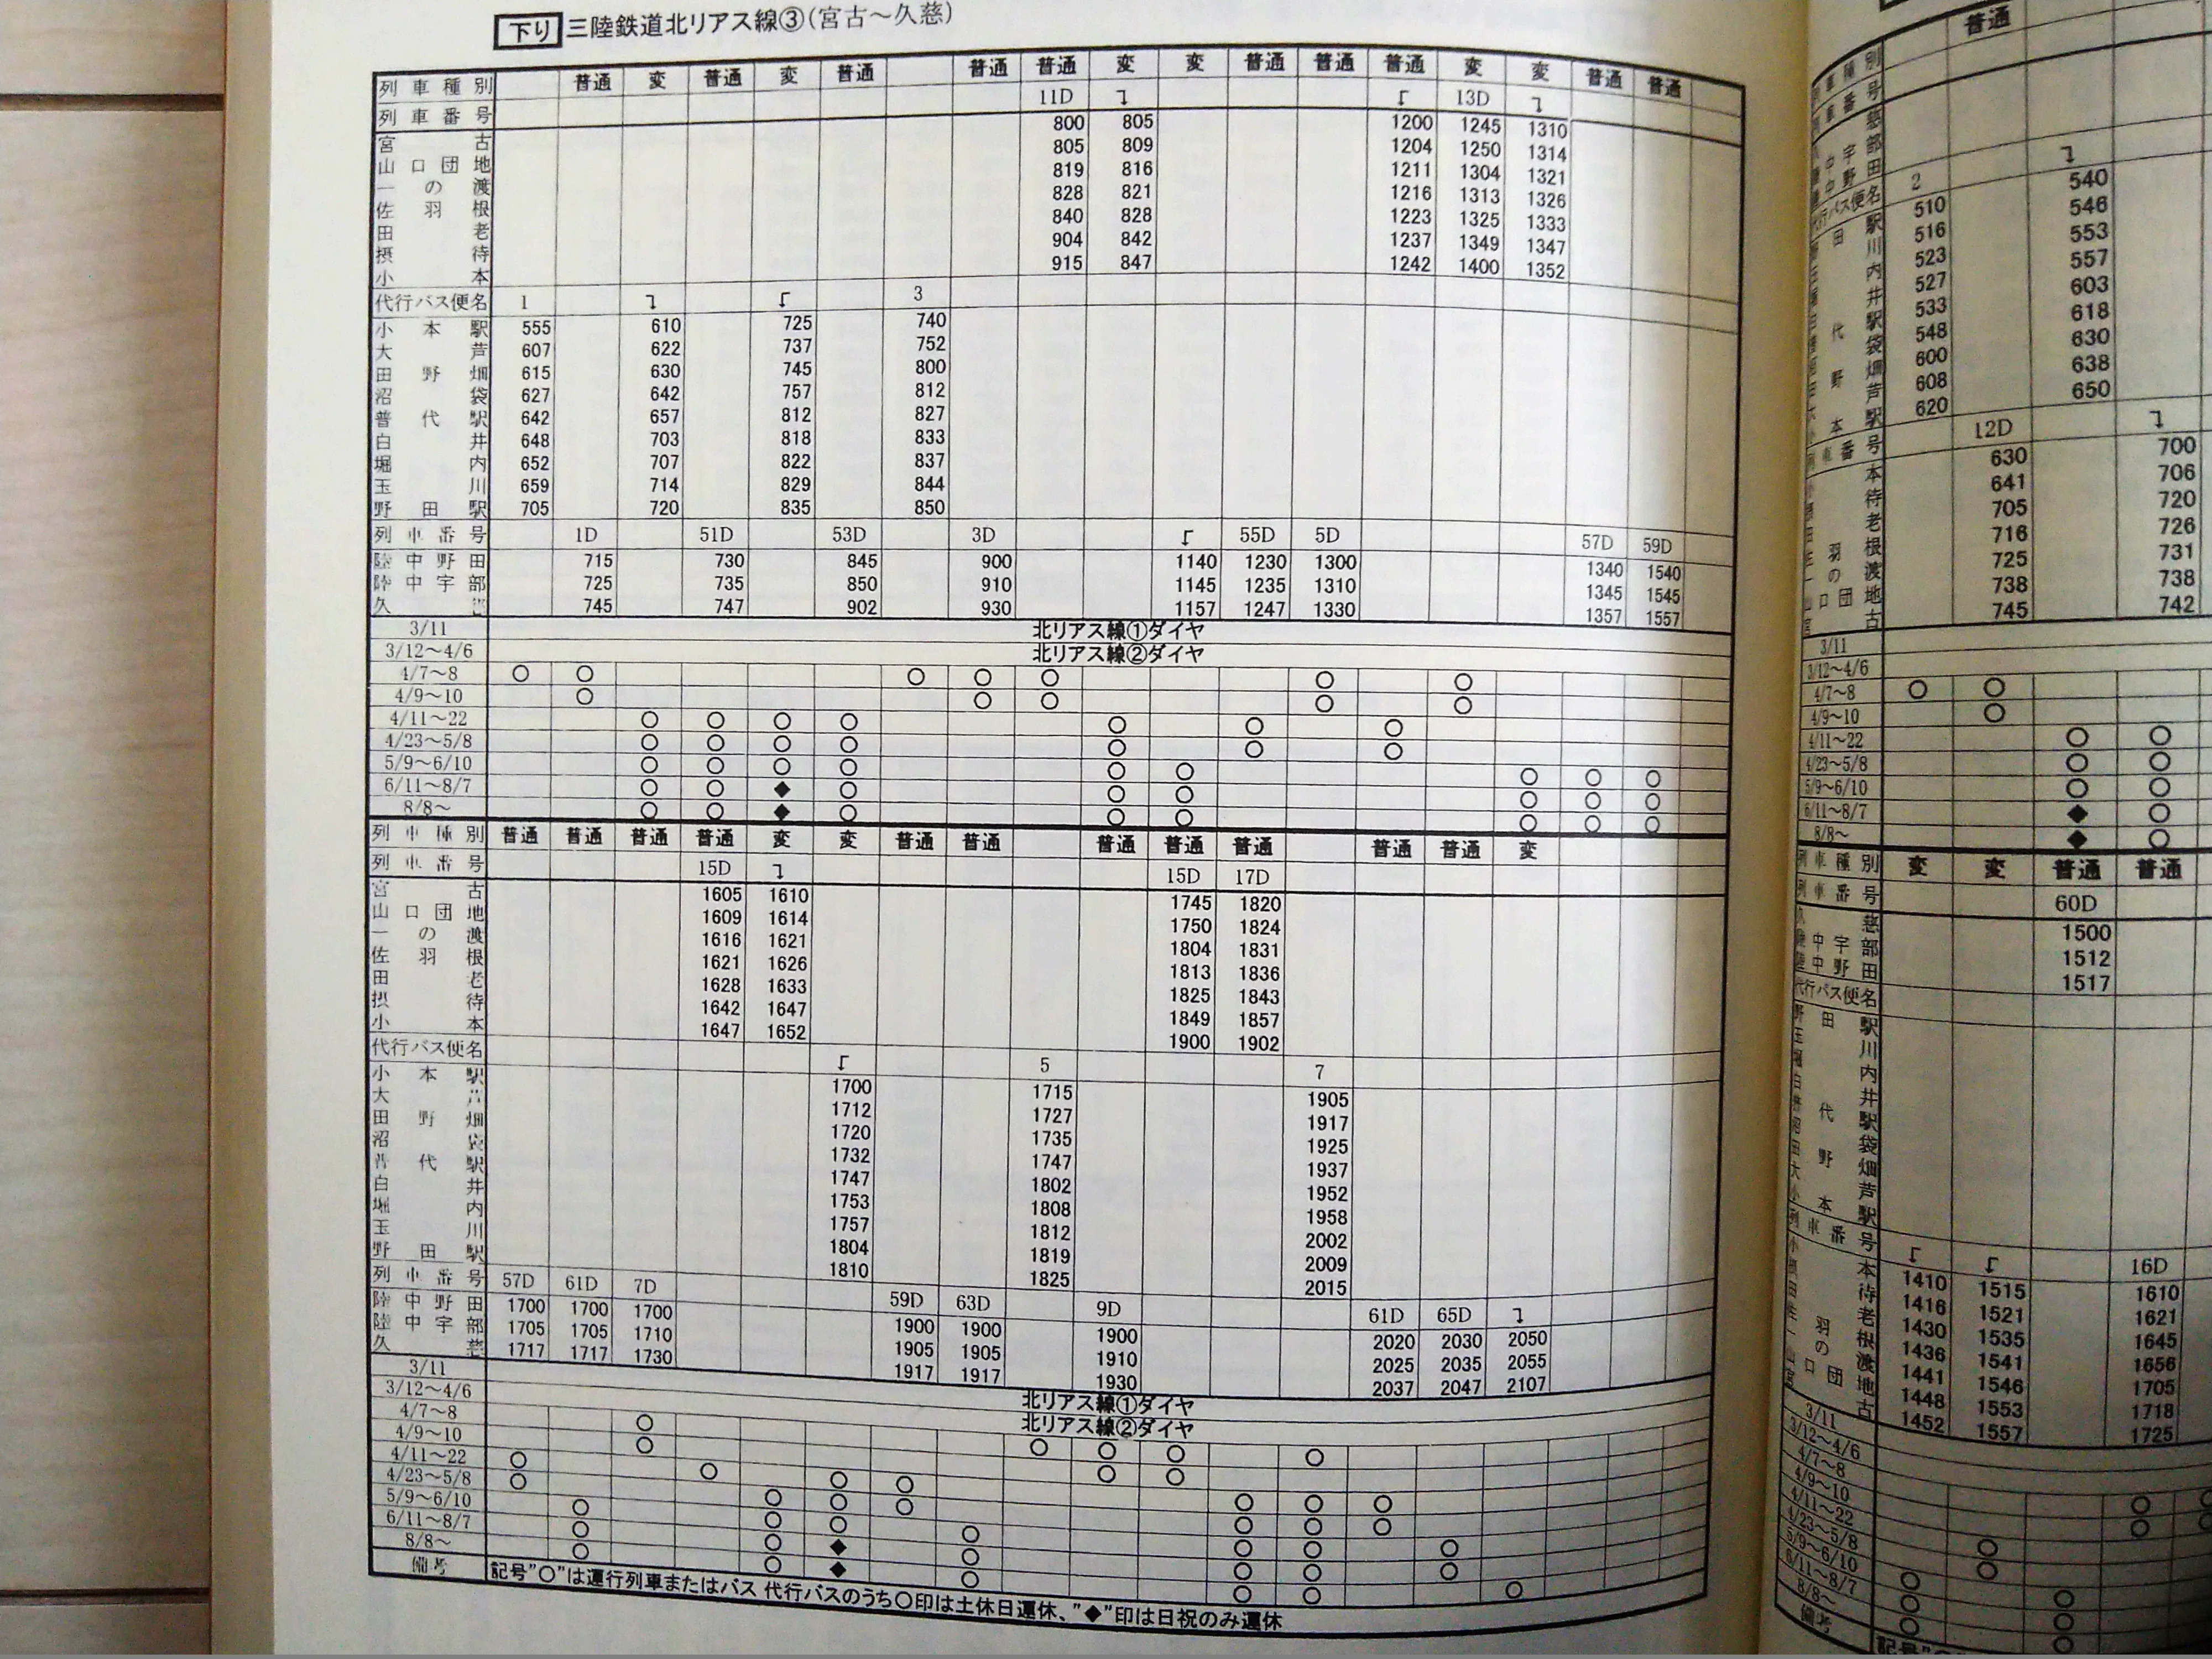 下り 三陸鉄道北リアス線③(宮古～久慈)
列車種別 普通 変 普通 変 普通 普通 普通 変 変 普通 普通 普通 変 変 普通 普通
列車番号 11D ↴ 13D ↴
宮古 800 805 1200 1245 1310
山口団地 805 809 1204 1250 1314
一の渡 819 816 1211 1304 1321
佐羽根 828 821 1216 1313 1326
田老 840 828 1223 1325 1333
摂待 904 842 1237 1349 1347
小本 915 847 1242 1400 1352
代行バス便名 1 3
小本駅 555 610 725 740
大芦 607 622 737 752
田野畑 615 630 745 800
沼袋 627 642 757 812
普代駅 642 657 812 827
白井 648 703 818 833
堀内 652 707 822 837
玉川 659 714 829 844
野田駅 705 720 835 850
列車番号 1D 51D 53D 3D 55D 5D 57D 59D
陸中野田 715 730 845 900 1140 1230 1300 1340 1540
陸中宇部 725 735 850 910 1145 1235 1310 1345 1545
久慈 745 747 902 930 1157 1247 1330 1357 1557
3/11 北リアス線①ダイヤ
3/12～4/6 北リアス線②ダイヤ
4/7～8 ○ ○ ○ ○ ○ ○ ○
4/9～10 ○ ○ ○ ○ ○
4/11～22 ○ ○ ○ ○ ○ ○ ○
4/23～5/8 ○ ○ ○ ○ ○ ○ ○
5/9～6/10 ○ ○ ○ ○ ○ ○ ○ ○ ○
6/11～8/7 ○ ○ ◆ ○ ○ ○ ○ ○ ○
8/8～ ○ ○ ◆ ○ ○ ○ ○ ○ ○
列車種別 普通 普通 普通 普通 変 変 普通 普通 普通 普通 普通 普通 普通 変
列車番号 15D 15D 17D
宮古 1605 1610 1745 1820
山口団地 1609 1614 1750 1824
一の渡 1616 1621 1804 1831
佐羽根 1621 1626 1813 1836
田老 1628 1633 1825 1843
摂待 1642 1647 1849 1857
小本 1647 1652 1900 1902
代行バス便名 5 7
小本駅 1700 1715 1905
大芦 1712 1727 1917
田野畑 1720 1735 1925
沼袋 1732 1747 1937
普代駅 1747 1802 1952
白井 1753 1808 1958
堀内 1757 1812 2002
玉川 1804 1819 2009
野田駅 1810 1825 2015
列車番号 57D 61D 7D 59D 63D 9D 61D 65D
陸中野田 1700 1700 1700 1900 1900 1900 2020 2030 2050
陸中宇部 1705 1705 1710 1905 1905 1910 2025 2035 2055
久慈 1717 1717 1730 1917 1917 1930 2037 2047 2107
3/11 北リアス線①ダイヤ
3/12～4/6 北リアス線②ダイヤ
4/7～8 ○ ○ ○ ○ ○
4/9～10 ○ ○ ○
4/11～22 ○ ○ ○ ○ ○ ○ ○
4/23～5/8 ○ ○ ○ ○ ○ ○ ○
5/9～6/10 ○ ○ ○ ○ ○ ○ ○
6/11～8/7 ○ ○ ◆ ○ ○ ○ ○
8/8～ ○ ○ ◆ ○ ○ ○ ○
備考 記号"○"は運行列車またはバス 代行バスのうち○印は土休日運休、"◆"印は日祝のみ運休
列車種別 普通
列車番号
慈
中宇部
中野田
代行バス便名 2
田駅 510 540
川 516 546
内 523 553
井 527 557
代駅 533 603
袋 548 618
野畑 600 630
芦 608 638
本駅 620 650
車番号 12D
本 630 700
待 641 706
老 705 720
羽根 716 726
の渡 725 731
山口団地 738 738
古 745 742
3/11
3/12～4/6
4/7～8 ○ ○
4/9～10 ○
4/11～22 ○ ○
4/23～5/8 ○ ○
5/9～6/10 ○ ○
6/11～8/7 ◆ ○
8/8～ ◆ ○
列車種別 変 変 普通 普通
列車番号 60D
慈 1500
中宇部 1512
陸中野田 1517
代行バス便名
野田駅
玉川
堀内
白井
代駅
沼袋
田野畑
大芦
小本駅
列車番号 16D
小本 1410 1515 1610
待 1416 1521 1621
田老 1430 1535 1645
羽根 1436 1541 1656
一の渡 1441 1546 1705
山口団地 1448 1553 1718
古 1452 1557 1725
3/11
3/12～4/6
4/7～8
4/9～10
4/11～22
4/23～5/8
5/9～6/10
6/11～8/7
8/8～
備考